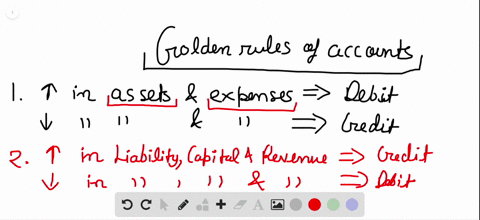 Golden rules of accounts
1. ↑ in assets & expenses ⇒ Debit
↓ " " & " ⇒ Credit
2. ↑ in Liability, Capital & Revenue ⇒ Credit
↓ in " , " & " ⇒ Debit